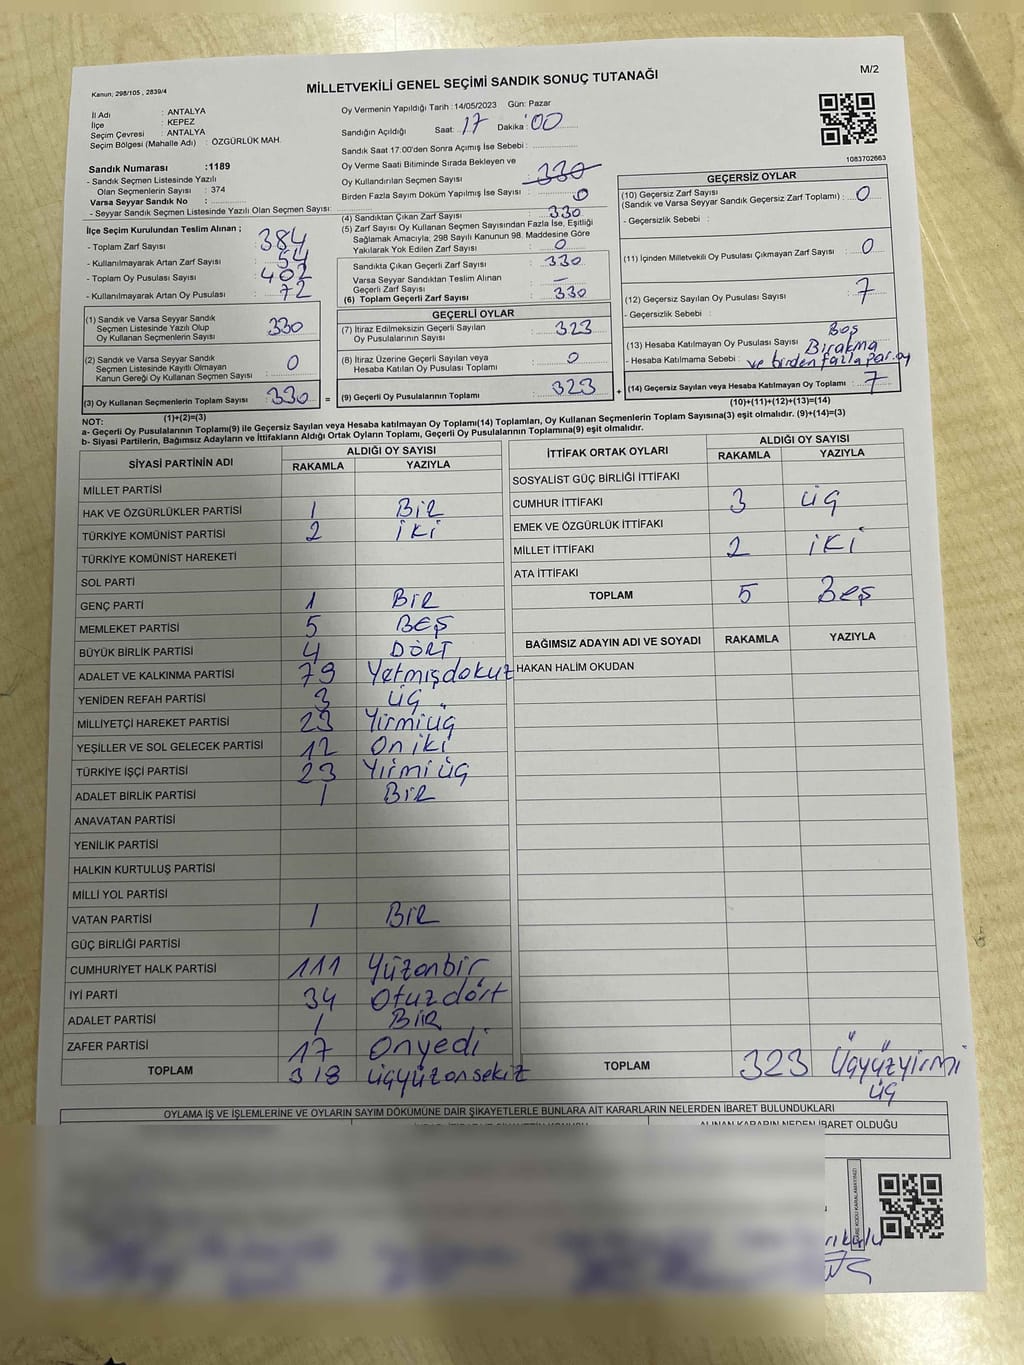 M/2
Kanun; 298/105 , 2839/4
MİLLETVEKİLİ GENEL SEÇİMİ SANDIK SONUÇ TUTANAĞI
İl Adı : ANTALYA
İlçe : KEPEZ
Seçim Çevresi : ANTALYA
Seçim Bölgesi (Mahalle Adı) : ÖZGÜRLÜK MAH.
Sandık Numarası :1189
- Sandık Seçmen Listesinde Yazılı
Olan Seçmenlerin Sayısı : 374
Varsa Seyyar Sandık No :
- Seyyar Sandık Seçmen Listesinde Yazılı Olan Seçmen Sayısı:
İlçe Seçim Kurulundan Teslim Alınan ;
- Toplam Zarf Sayısı : 384
- Kullanılmayarak Artan Zarf Sayısı : 54
- Toplam Oy Pusulası Sayısı : 402
- Kullanılmayarak Artan Oy Pusulası : 72
(1) Sandık ve Varsa Seyyar Sandık
Seçmen Listesinde Yazılı Olup
Oy Kullanan Seçmenlerin Sayısı : 330
(2) Sandık ve Varsa Seyyar Sandık
Seçmen Listesinde Kayıtlı Olmayan
Kanun Gereği Oy Kullanan Seçmen Sayısı : 0
(3) Oy Kullanan Seçmenlerin Toplam Sayısı : 330 =
(1)+(2)=(3)
Oy Vermenin Yapıldığı Tarih : 14/05/2023 Gün: Pazar
Sandığın Açıldığı Saat: 17 Dakika: 00
Sandık Saat 17:00'den Sonra Açımış İse Sebebi :
Oy Verme Saati Bitiminde Sırada Bekleyen ve
Oy Kullandırılan Seçmen Sayısı : 330
Birden Fazla Sayım Döküm Yapılmış İse Sayısı : 0
(4) Sandıktan Çıkan Zarf Sayısı : 330
(5) Zarf Sayısı Oy Kullanan Seçmen Sayısından Fazla İse, Eşitliği
Sağlamak Amacıyla; 298 Sayılı Kanunun 98. Maddesine Göre
Yakılarak Yok Edilen Zarf Sayısı : 0
Sandıkta Çıkan Geçerli Zarf Sayısı : 330
Varsa Seyyar Sandıktan Teslim Alınan
Geçerli Zarf Sayısı : —
(6) Toplam Geçerli Zarf Sayısı : 330
GEÇERLİ OYLAR
(7) İtiraz Edilmeksizin Geçerli Sayılan
Oy Pusulalarının Sayısı : 323
(8) İtiraz Üzerine Geçerli Sayılan veya
Hesaba Katılan Oy Pusulası Toplamı : 0
(9) Geçerli Oy Pusulalarının Toplamı : 323 +
1083702663
GEÇERSİZ OYLAR
(10) Geçersiz Zarf Sayısı
(Sandık ve Varsa Seyyar Sandık Geçersiz Zarf Toplamı) : 0
- Geçersizlik Sebebi :
(11) İçinden Milletvekili Oy Pusulası Çıkmayan Zarf Sayısı : 0
(12) Geçersiz Sayılan Oy Pusulası Sayısı : 7
- Geçersizlik Sebebi :
(13) Hesaba Katılmayan Oy Pusulası Sayısı : Boş Bırakma
- Hesaba Katılmama Sebebi : ve birden fazla par. oy
(14) Geçersiz Sayılan veya Hesaba Katılmayan Oy Toplamı : 7
(10)+(11)+(12)+(13)=(14)
NOT:
a- Geçerli Oy Pusulalarının Toplamı(9) ile Geçersiz Sayılan veya Hesaba katılmayan Oy Toplamı(14) Toplamları, Oy Kullanan Seçmenlerin Toplam Sayısına(3) eşit olmalıdır. (9)+(14)=(3)
b- Siyasi Partilerin, Bağımsız Adayların ve İttifakların Aldığı Ortak Oyların Toplamı, Geçerli Oy Pusulalarının Toplamına(9) eşit olmalıdır.
SİYASİ PARTİNİN ADI ALDIĞI OY SAYISI
RAKAMLA YAZIYLA
MİLLET PARTİSİ
HAK VE ÖZGÜRLÜKLER PARTİSİ 1 BİR
TÜRKİYE KOMÜNİST PARTİSİ 2 İKİ
TÜRKİYE KOMÜNİST HAREKETİ
SOL PARTİ
GENÇ PARTİ 1 BİR
MEMLEKET PARTİSİ 5 BEŞ
BÜYÜK BİRLİK PARTİSİ 4 DÖRT
ADALET VE KALKINMA PARTİSİ 79 Yetmişdokuz
YENİDEN REFAH PARTİSİ 3 üç
MİLLİYETÇİ HAREKET PARTİSİ 23 Yirmiüç
YEŞİLLER VE SOL GELECEK PARTİSİ 12 On iki
TÜRKİYE İŞÇİ PARTİSİ 23 Yirmi üç
ADALET BİRLİK PARTİSİ 1 BİR
ANAVATAN PARTİSİ
YENİLİK PARTİSİ
HALKIN KURTULUŞ PARTİSİ
MİLLİ YOL PARTİSİ
VATAN PARTİSİ 1 BİR
GÜÇ BİRLİĞİ PARTİSİ
CUMHURİYET HALK PARTİSİ 111 Yüzonbir
İYİ PARTİ 34 Otuzdört
ADALET PARTİSİ 1 BİR
ZAFER PARTİSİ 17 Onyedi
TOPLAM 318 üçyüzonsekiz
İTTİFAK ORTAK OYLARI ALDIĞI OY SAYISI
RAKAMLA YAZIYLA
SOSYALİST GÜÇ BİRLİĞİ İTTİFAKI
CUMHUR İTTİFAKI 3 üç
EMEK VE ÖZGÜRLÜK İTTİFAKI
MİLLET İTTİFAKI 2 İKİ
ATA İTTİFAKI
TOPLAM 5 Beş
BAĞIMSIZ ADAYIN ADI VE SOYADI RAKAMLA YAZIYLA
HAKAN HALİM OKUDAN
TOPLAM 323 Üçyüzyirmi
üç
OYLAMA İŞ VE İŞLEMLERİNE VE OYLARIN SAYIM DÖKÜMÜNE DAİR ŞİKAYETLERLE BUNLARA AİT KARARLARIN NELERDEN İBARET BULUNDUKLARI
ALINAN KARARIN NEDEN İBARET OLDUĞU